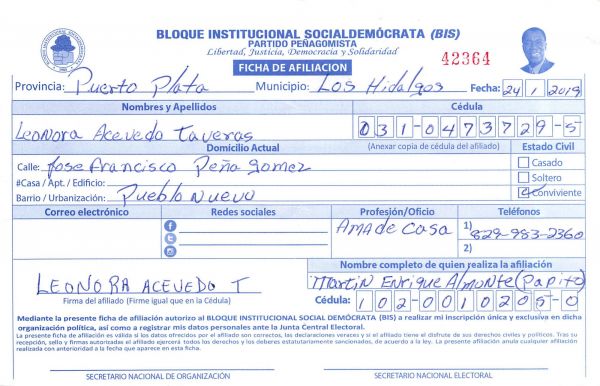 BLOQUE INSTITUCIONAL SOCIALDEMÓCRATA (BIS)
PARTIDO PEÑAGOMISTA
Libertad, Justicia, Democracia y Solidaridad
FICHA DE AFILIACION
42364
Provincia: Puerto Plata Municipio: Los Hidalgos Fecha: 24/1/2019
Nombres y Apellidos Cédula
Leonora Acevedo Taveras 031-0473729-5
Domicilio Actual (Anexar copia de cédula del afiliado) Estado Civil
Calle: Jose Francisco Peña Gomez Casado
#Casa / Apt. / Edificio: Soltero
Barrio / Urbanización: Pueblo Nuevo Conviviente
Correo electrónico Redes sociales Profesión/Oficio Teléfonos
Ama de Casa 1) 829-983-2360
2)
Nombre completo de quien realiza la afiliación
LEONORA ACEVEDO T Martin Enrique Almonte (Papito)
Firma del afiliado (Firme igual que en la Cédula) Cédula: 102-0010205-0
Mediante la presente ficha de afiliación autorizo al BLOQUE INSTITUCIONAL SOCIAL DEMÓCRATA (BIS) a realizar mi inscripción única y exclusiva en dicha
organización política, así como a registrar mis datos personales ante la Junta Central Electoral.
La presente ficha de afiliación es válida si los datos ofrecidos por el afiliado son correctos, las declaraciones veraces y si el afiliado tiene el disfrute de sus derechos civiles y políticos. Tras su
recepción, sello y firmas autorizadas el afiliado ejercerá todos los derechos y los deberes estatutariamente sancionados, de acuerdo a la ley. La presente afiliación anula cualquier afiliación
realizada con anterioridad a la fecha que aparece en esta ficha.
SECRETARIO NACIONAL DE ORGANIZACIÓN SECRETARIO NACIONAL ELECTORAL